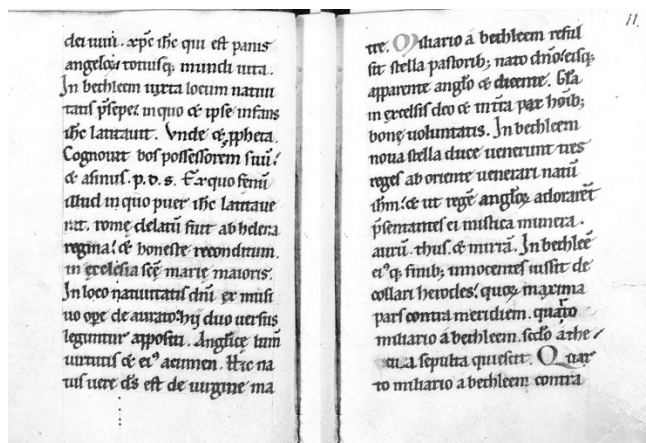 dei uiui. xp̄c ih̄c qui est panis
angeloꝝ totiusq; mundi uita.
In bethleem iuxta locum natiui
tatis p̄sepe. in quo & ipse infans
ih̄c latitauit. Vnde & ꝓpheta.
Cognouit bos possessorem suū.
& asinus. p. d. s. Ex quo fenū
illud in quo puer ih̄c latitaue
rat. rome delatū fuit ab helena
regina. & honeste reconditum.
in ecclesia sc̄e marie maioris.
In loco natiuitatis dn̄i ex musi
uo ope de aurato. hij duo uersus
leguntur appositi. Anglice lum̄
uirtutis & ei⁹ acumen. Hic na
tus uere d̄s est de uirgine ma
11.
tre. Miliario á bethleem reful
sit stella pastorib; nato dn̄o. eisq;
apparente angl̓o & dicente. Gl̄a
in excelsis deo & in t̄ra pax hōib;
bonę uoluntatis. In bethleem
noua stella duce uenerunt tres
reges ab oriente uenerari natū
ih̄m. & ut regē angl̓oꝝ adorarēt
p̄sentantes ei mistica munera.
aurū. thus. & mirrā. In bethleē
ei⁹q; finib; innocentes iussit de
collari herodes. quoꝝ maxima
pars contra meridiem. quarto
miliario á bethleem. scd̄o a the
cua sepulta quiescit. Quar
to miliario á bethleem contra